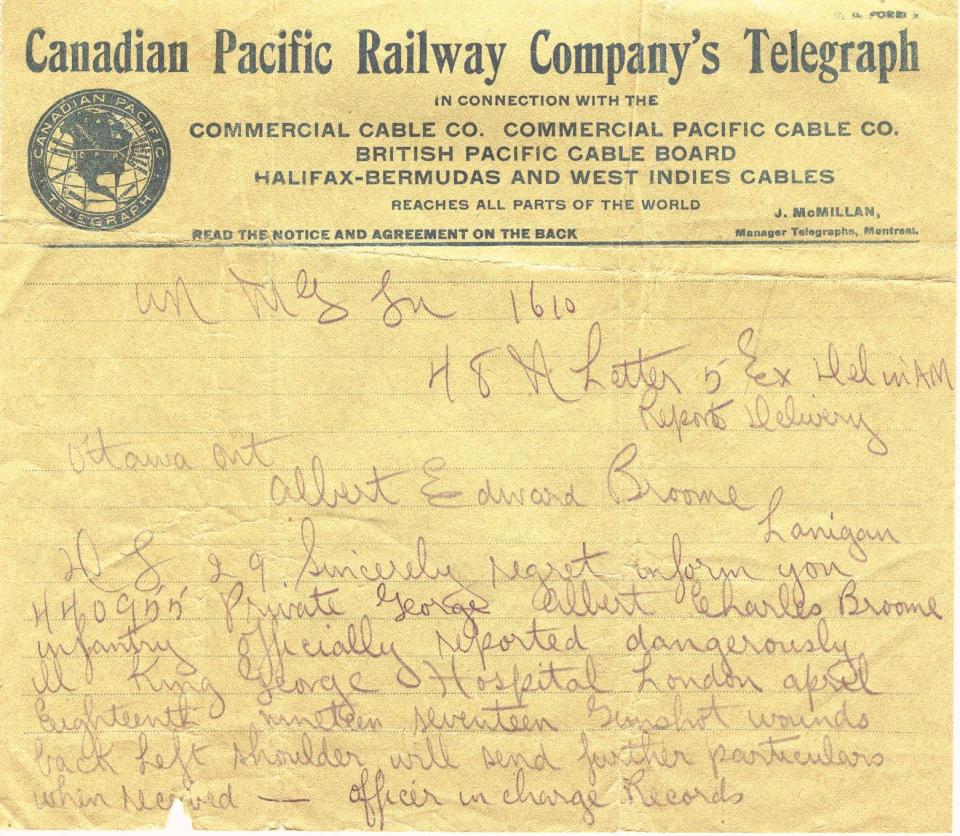 Canadian Pacific Railway Company's Telegraph
IN CONNECTION WITH THE
COMMERCIAL CABLE CO. COMMERCIAL PACIFIC CABLE CO.
BRITISH PACIFIC CABLE BOARD
HALIFAX-BERMUDAS AND WEST INDIES CABLES
REACHES ALL PARTS OF THE WORLD
J. McMILLAN,
READ THE NOTICE AND AGREEMENT ON THE BACK
Manager Telegraphs, Montreal.
CANADIAN PACIFIC
TELEGRAPH
1610
48 Letter 5 Ex Del in AM
Report Delivery
Ottawa Ont
Albert Edward Broome
Lanigan
29 Sincerely regret inform you
440955 Private George Albert Charles Broome
infantry officially reported dangerously
ill King George Hospital London april
Eighteenth nineteen seventeen Gunshot wounds
back left shoulder will send further particulars
when received — Officer in charge Records